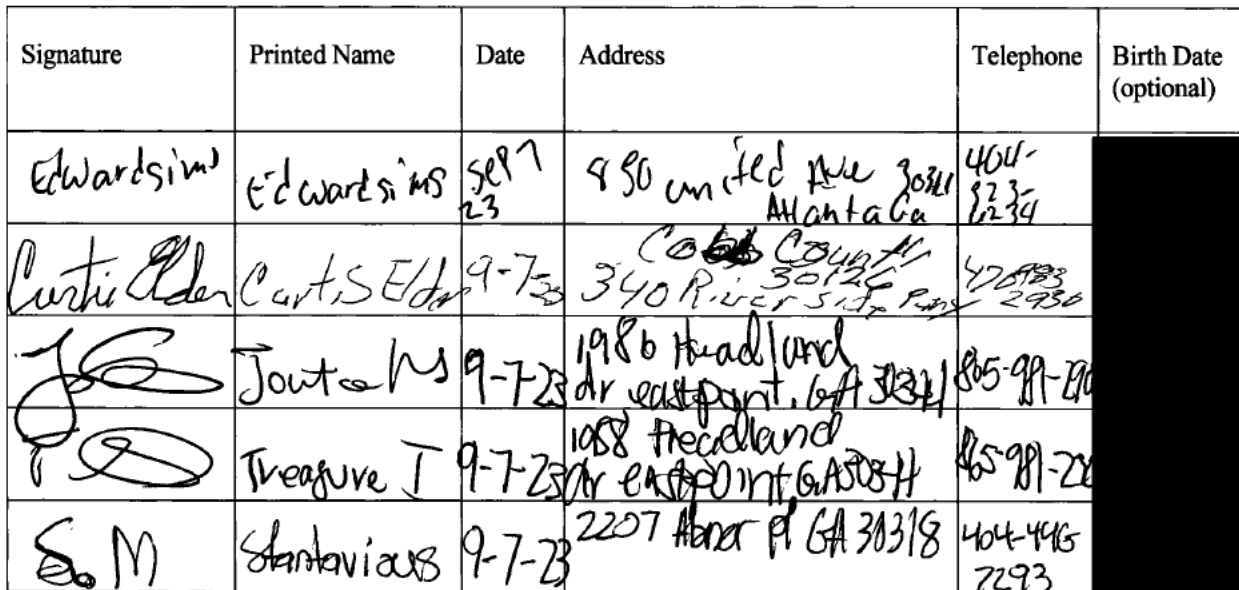 Signature Printed Name Date Address Telephone Birth Date
(optional)
Edwardsims Edwardsims Sep 7
23
830 united Ave
Atlanta Ga
404-
Curtis Elder Curtis Elder 9-7-23 Cobb County
340 Riverside Pkwy
30126
2930
9-7-23 Headland
dr eastpoint, GA
Treasure T 9-7-23 1988 Headland
dr eastpoint, GA
S. M Stantavious 9-7-23 2207 Abner Pl GA 30318 404-446
7293